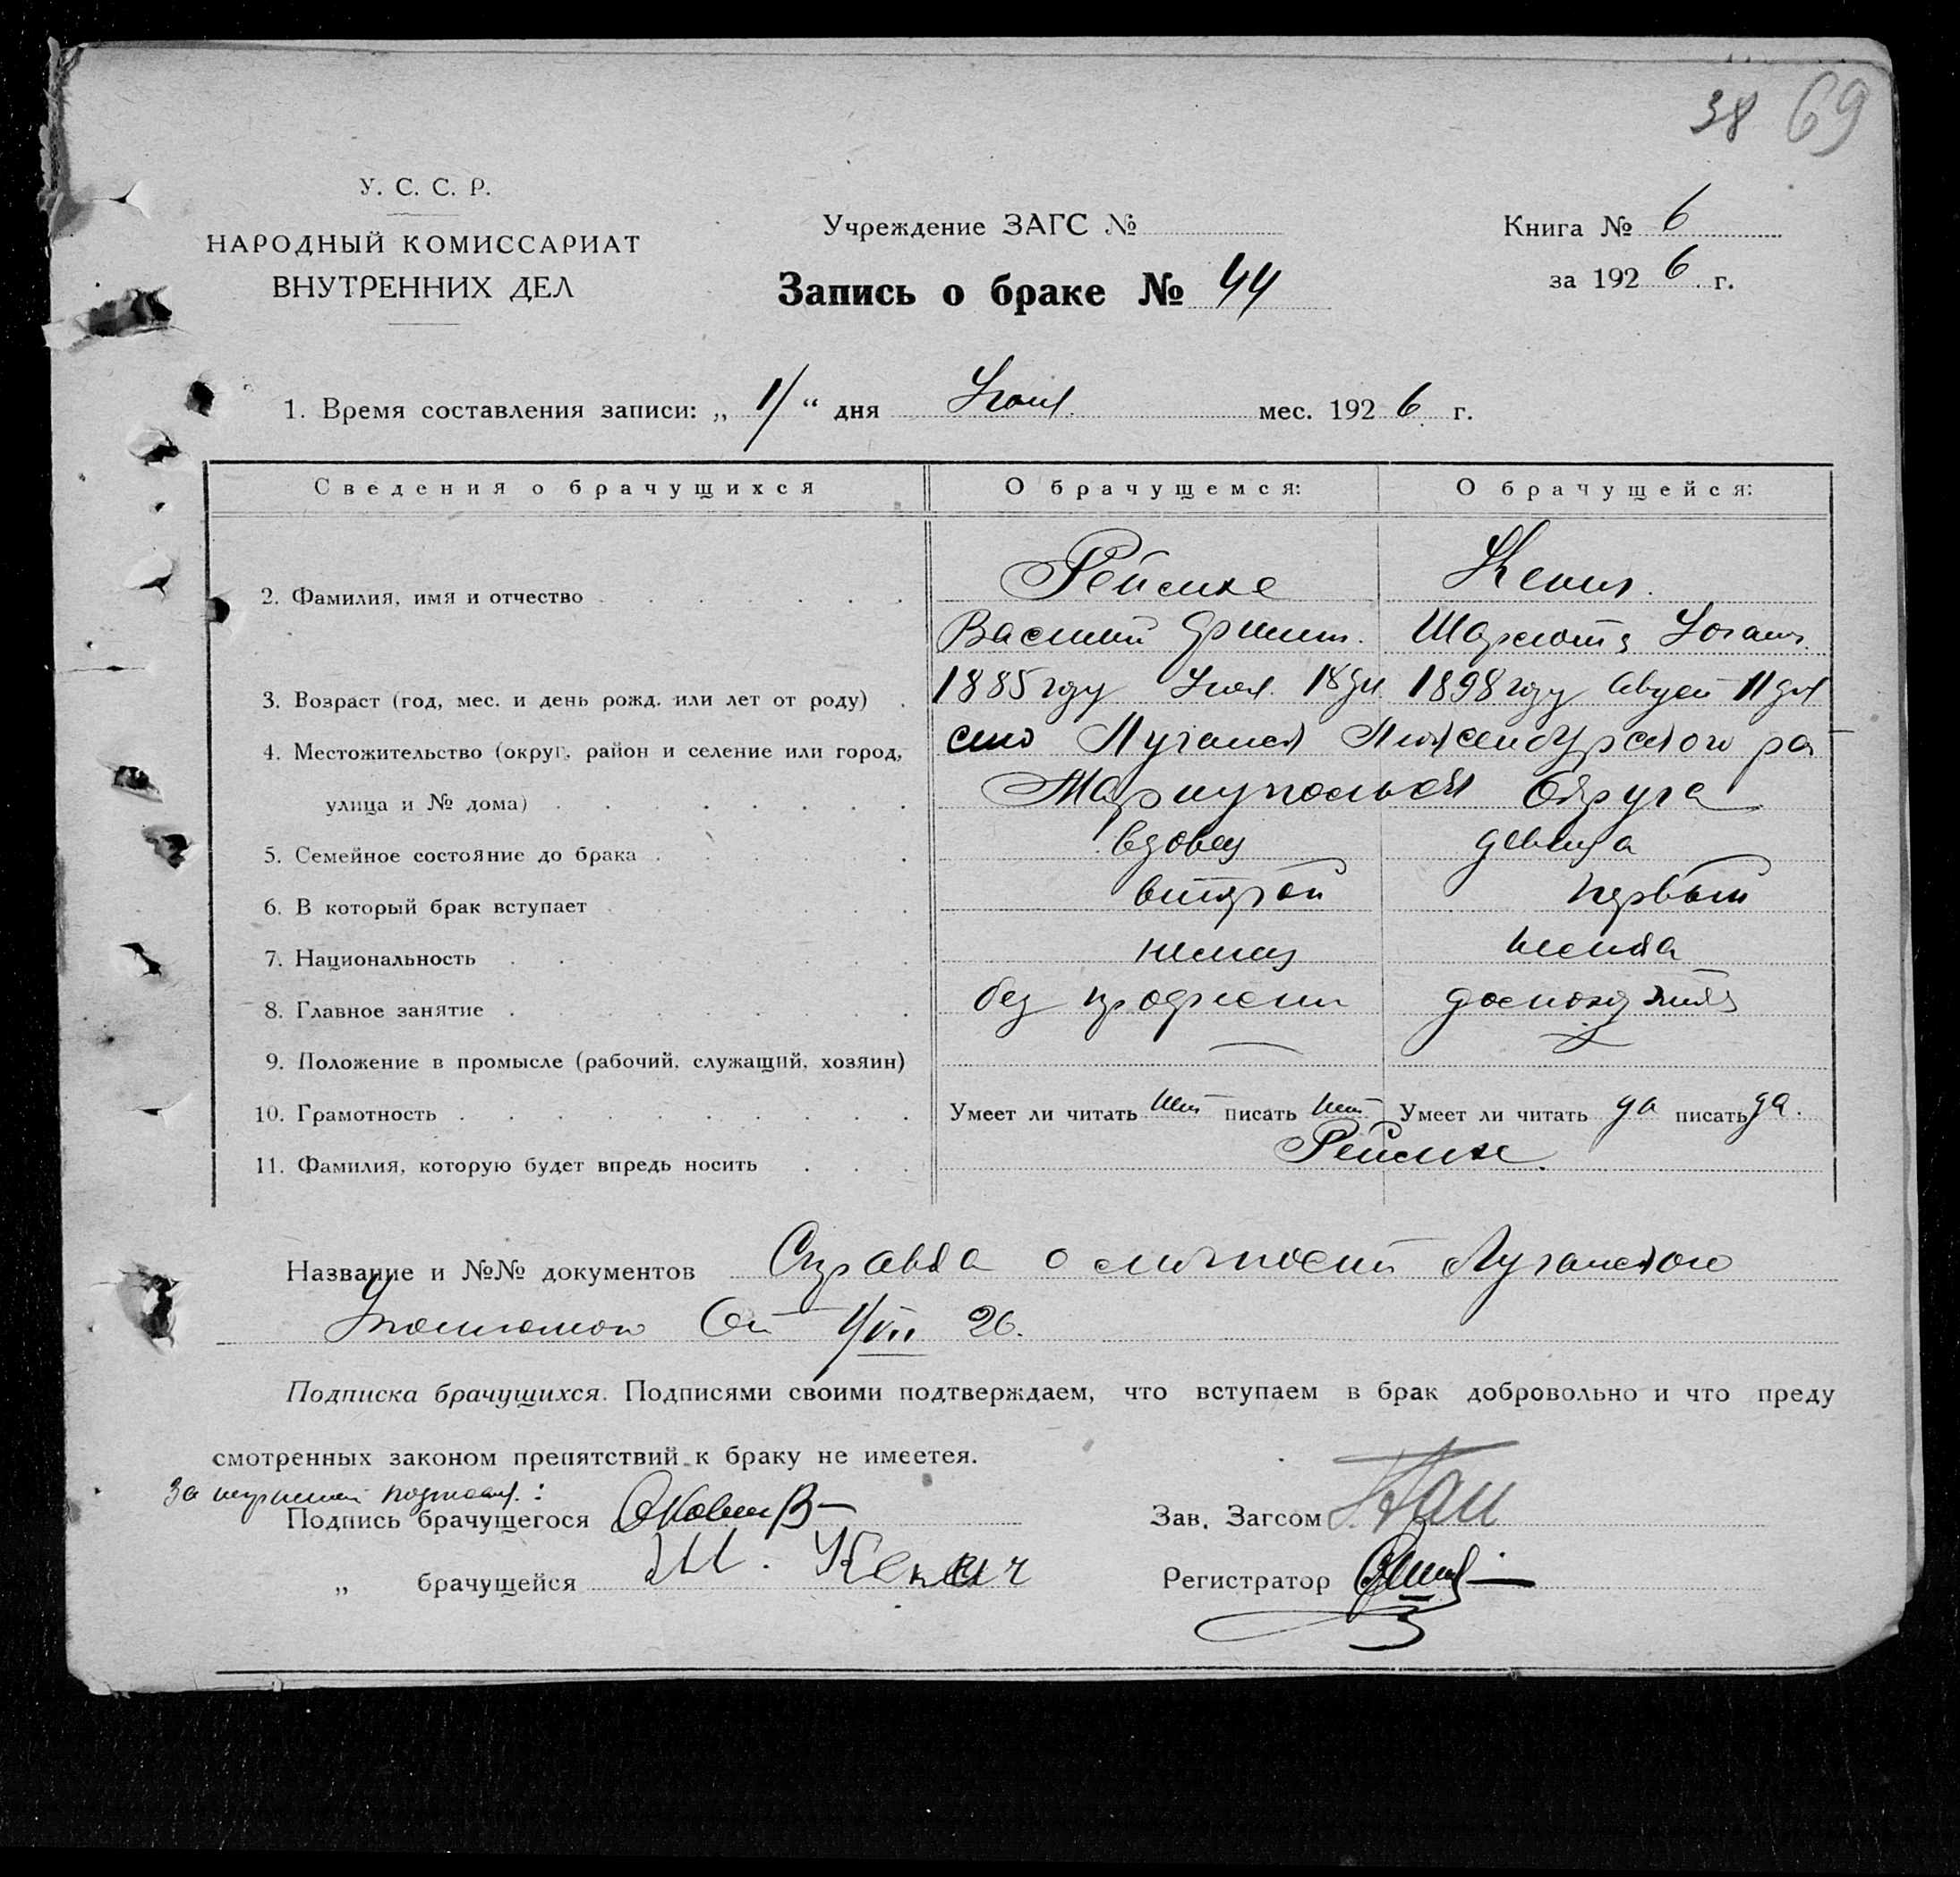 38 69
У. С. С. Р.
НАРОДНЫЙ КОМИССАРИАТ
ВНУТРЕННИХ ДЕЛ
Учреждение ЗАГС №
Запись о браке № 44
Книга № 6
за 1926 г.
1. Время составления записи: „ 1/ “ дня Июля мес. 1926 г.
Сведения о брачущихся О брачущемся: О брачущейся:
Рейсихе Кениг
2. Фамилия, имя и отчество
Василий Шарлота Иоганн.
3. Возраст (год, мес. и день рожд. или лет от роду) 1885 году Июля 18 дн 1898 году 11 дня
4. Местожительство (округ, район и селение или город, село Луганск Люксембургского ра
улица и № дома) Мариупольской Округа
5. Семейное состояние до брака вдовец девица
6. В который брак вступает второй первый
7. Национальность немец немка
8. Главное занятие без професси домохоз
9. Положение в промысле (рабочий, служащий, хозяин) —
10. Грамотность Умеет ли читать нет писать нет Умеет ли читать да писать да.
11. Фамилия, которую будет впредь носить Рейсихе.
Название и №№ документов Справка о личности Луганского
От 1/VII 26.
Подписка брачущихся. Подписями своими подтверждаем, что вступаем в брак добровольно и что преду
смотренных законом препятствий к браку не имеется.
За :
Подпись брачущегося
Зав. Загсом
„ брачущейся Ш. Кениг
Регистратор